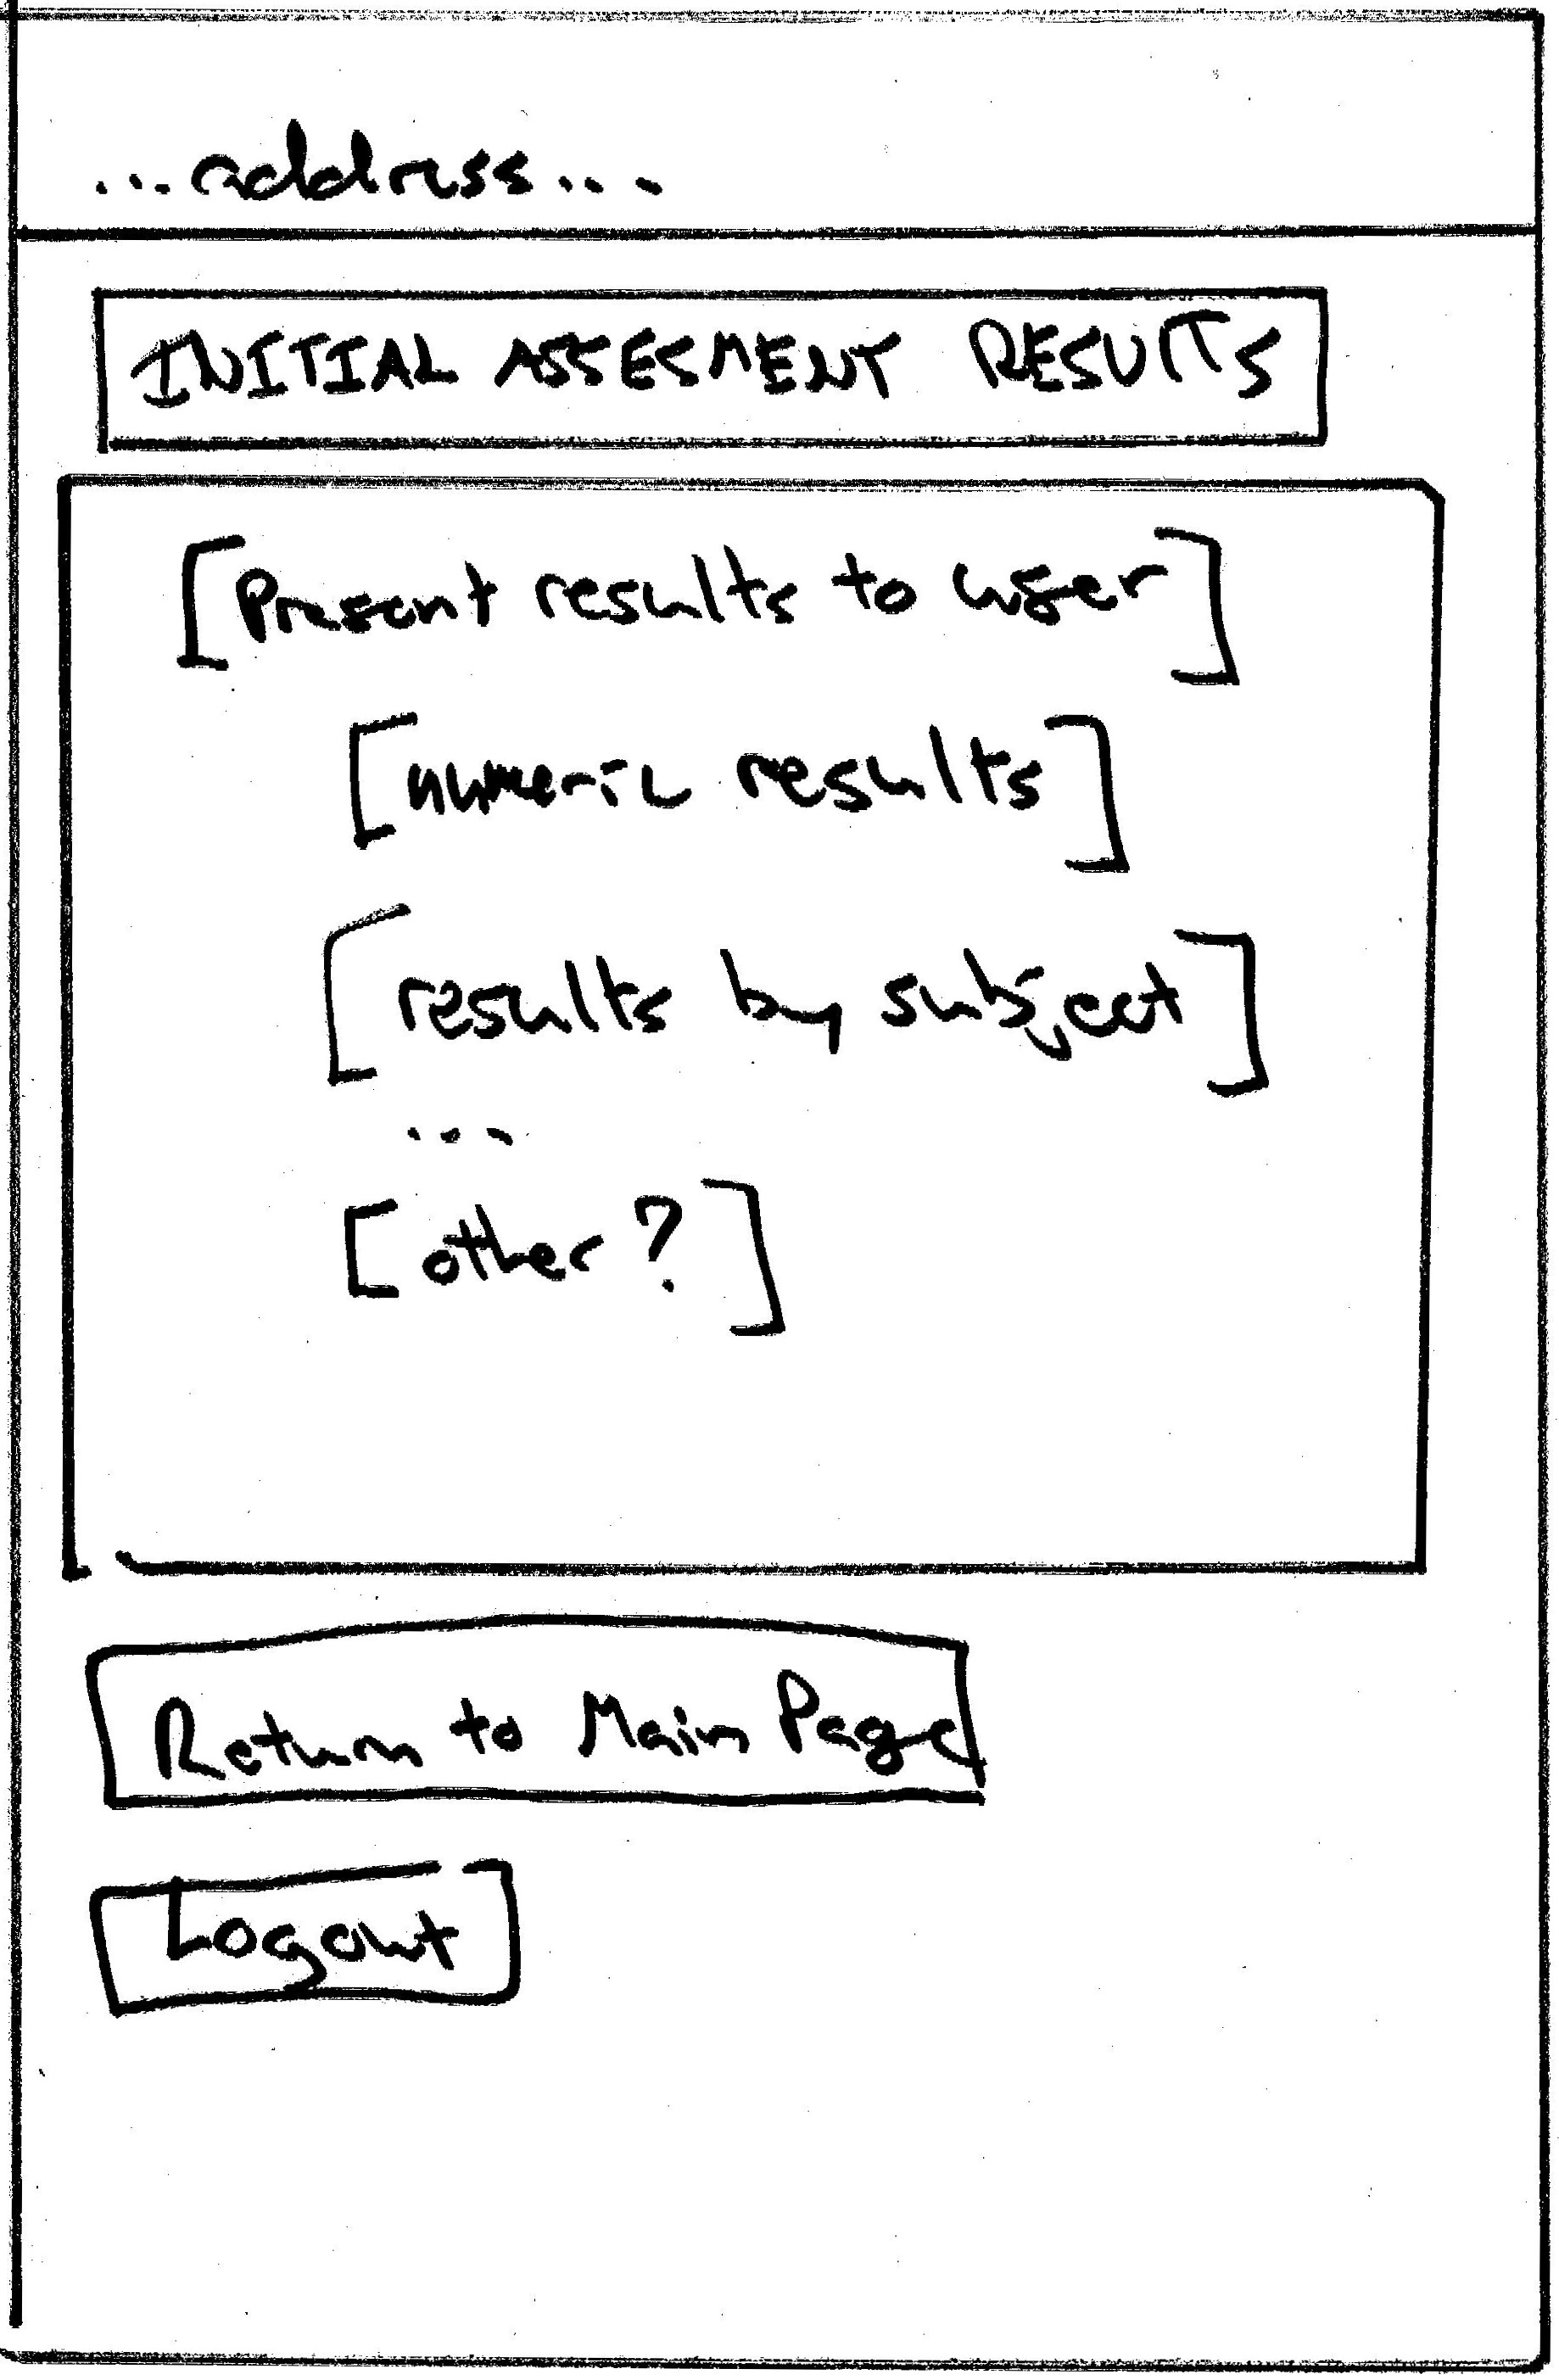 ...address...
INITIAL ASSESMENT RESULTS
[Present results to user]
[numeric results]
[results by subject]
...
[other?]
Return to Main Page
Logout